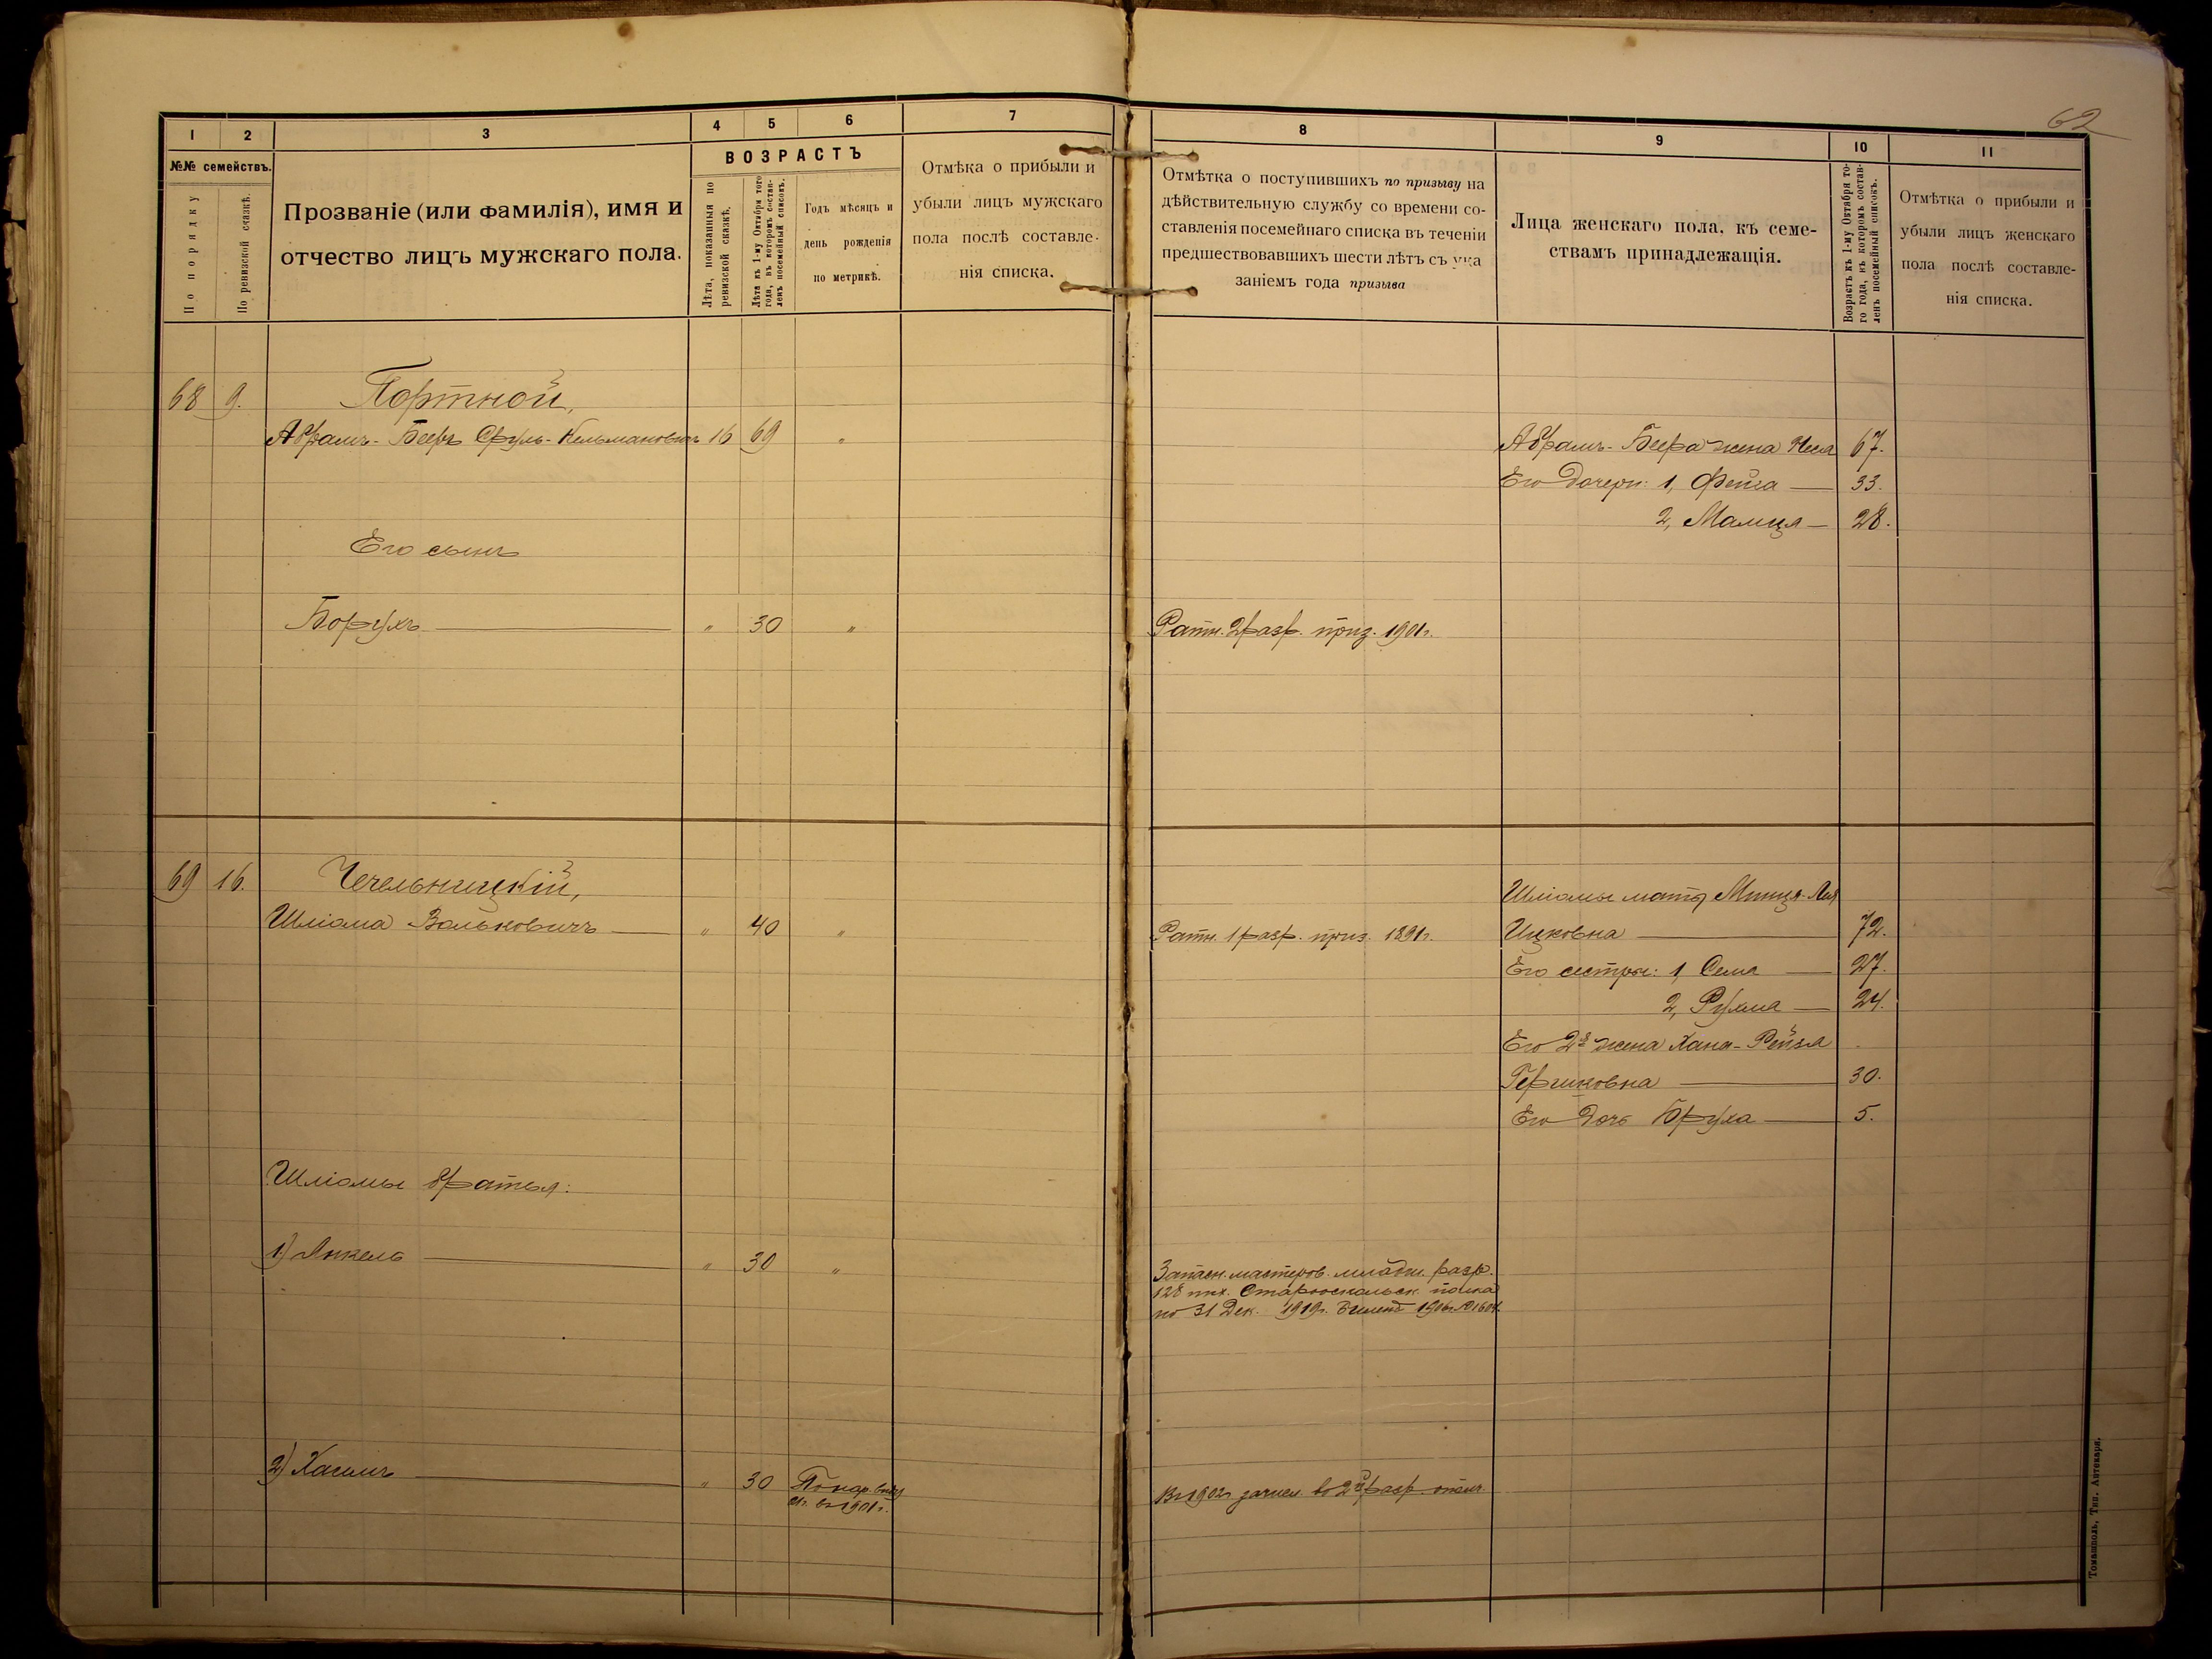 62
1 2 3 4 5 6 7
№№ семействъ.
По порядку
По ревизской сказкѣ.
Прозваніе (или фамилія), имя и
отчество лицъ мужскаго пола.
ВОЗРАСТЪ
Лѣта, показанныя по
ревизской сказкѣ.
Лѣта къ 1-му Октября того
года, въ которомъ состав-
ленъ посемейный списокъ.
Годъ мѣсяцъ и
день рожденія
по метрикѣ.
Отмѣка о прибыли и
убыли лицъ мужскаго
пола послѣ составле-
нія списка.
68 9. Портной,
Абрамъ-Бееръ Сруль-Кельмановичъ 16 69 "
Его сынъ
Борухъ " 30 "
69 16. Чечельницкій,
Шліома Вольковичъ " 40 "
Шліомы братья:
1) Янкель " 30 "
2) Хаимъ " 30 По нар. виду
21 г. въ 1901 г.
8 9 10 11
Отмѣтка о поступившихъ по призыву на
дѣйствительную службу со времени со-
ставленія посемейнаго списка въ теченіи
предшествовавшихъ шести лѣтъ съ ука
заніемъ года призыва
Лица женскаго пола, къ семе-
ствамъ принадлежащія.
Возрастъ къ 1-му Октября то-
го года, въ которомъ состав-
ленъ посемейный списокъ.
Отмѣтка о прибыли и
убыли лицъ женскаго
пола послѣ составле-
нія списка.
Абрамъ-Беера жена Неся 67.
Его дочери: 1, Фейга 33.
2, Малця 28.
Ратн. 2 разр. приз. 1901 г.
Шліомы мать Минця-Лея
Ратн. 1 разр. приз. 1891 г. Ицковна 72.
Его сестры: 1, Сема 27.
2, Рухма 24.
Его 2я жена Хана-Рейзя
Гершковна 30.
Его дочь Бруха 5.
Запасн. мастеров. младш. разр.
128 пѣх. Старооскольск. полка
по 31 Дек. 1919 г. 1906 г. № 1604.
Въ 1902 г. зачисл. во 2й разр. ополч.
Томашполь, Тип. Аптекаря.